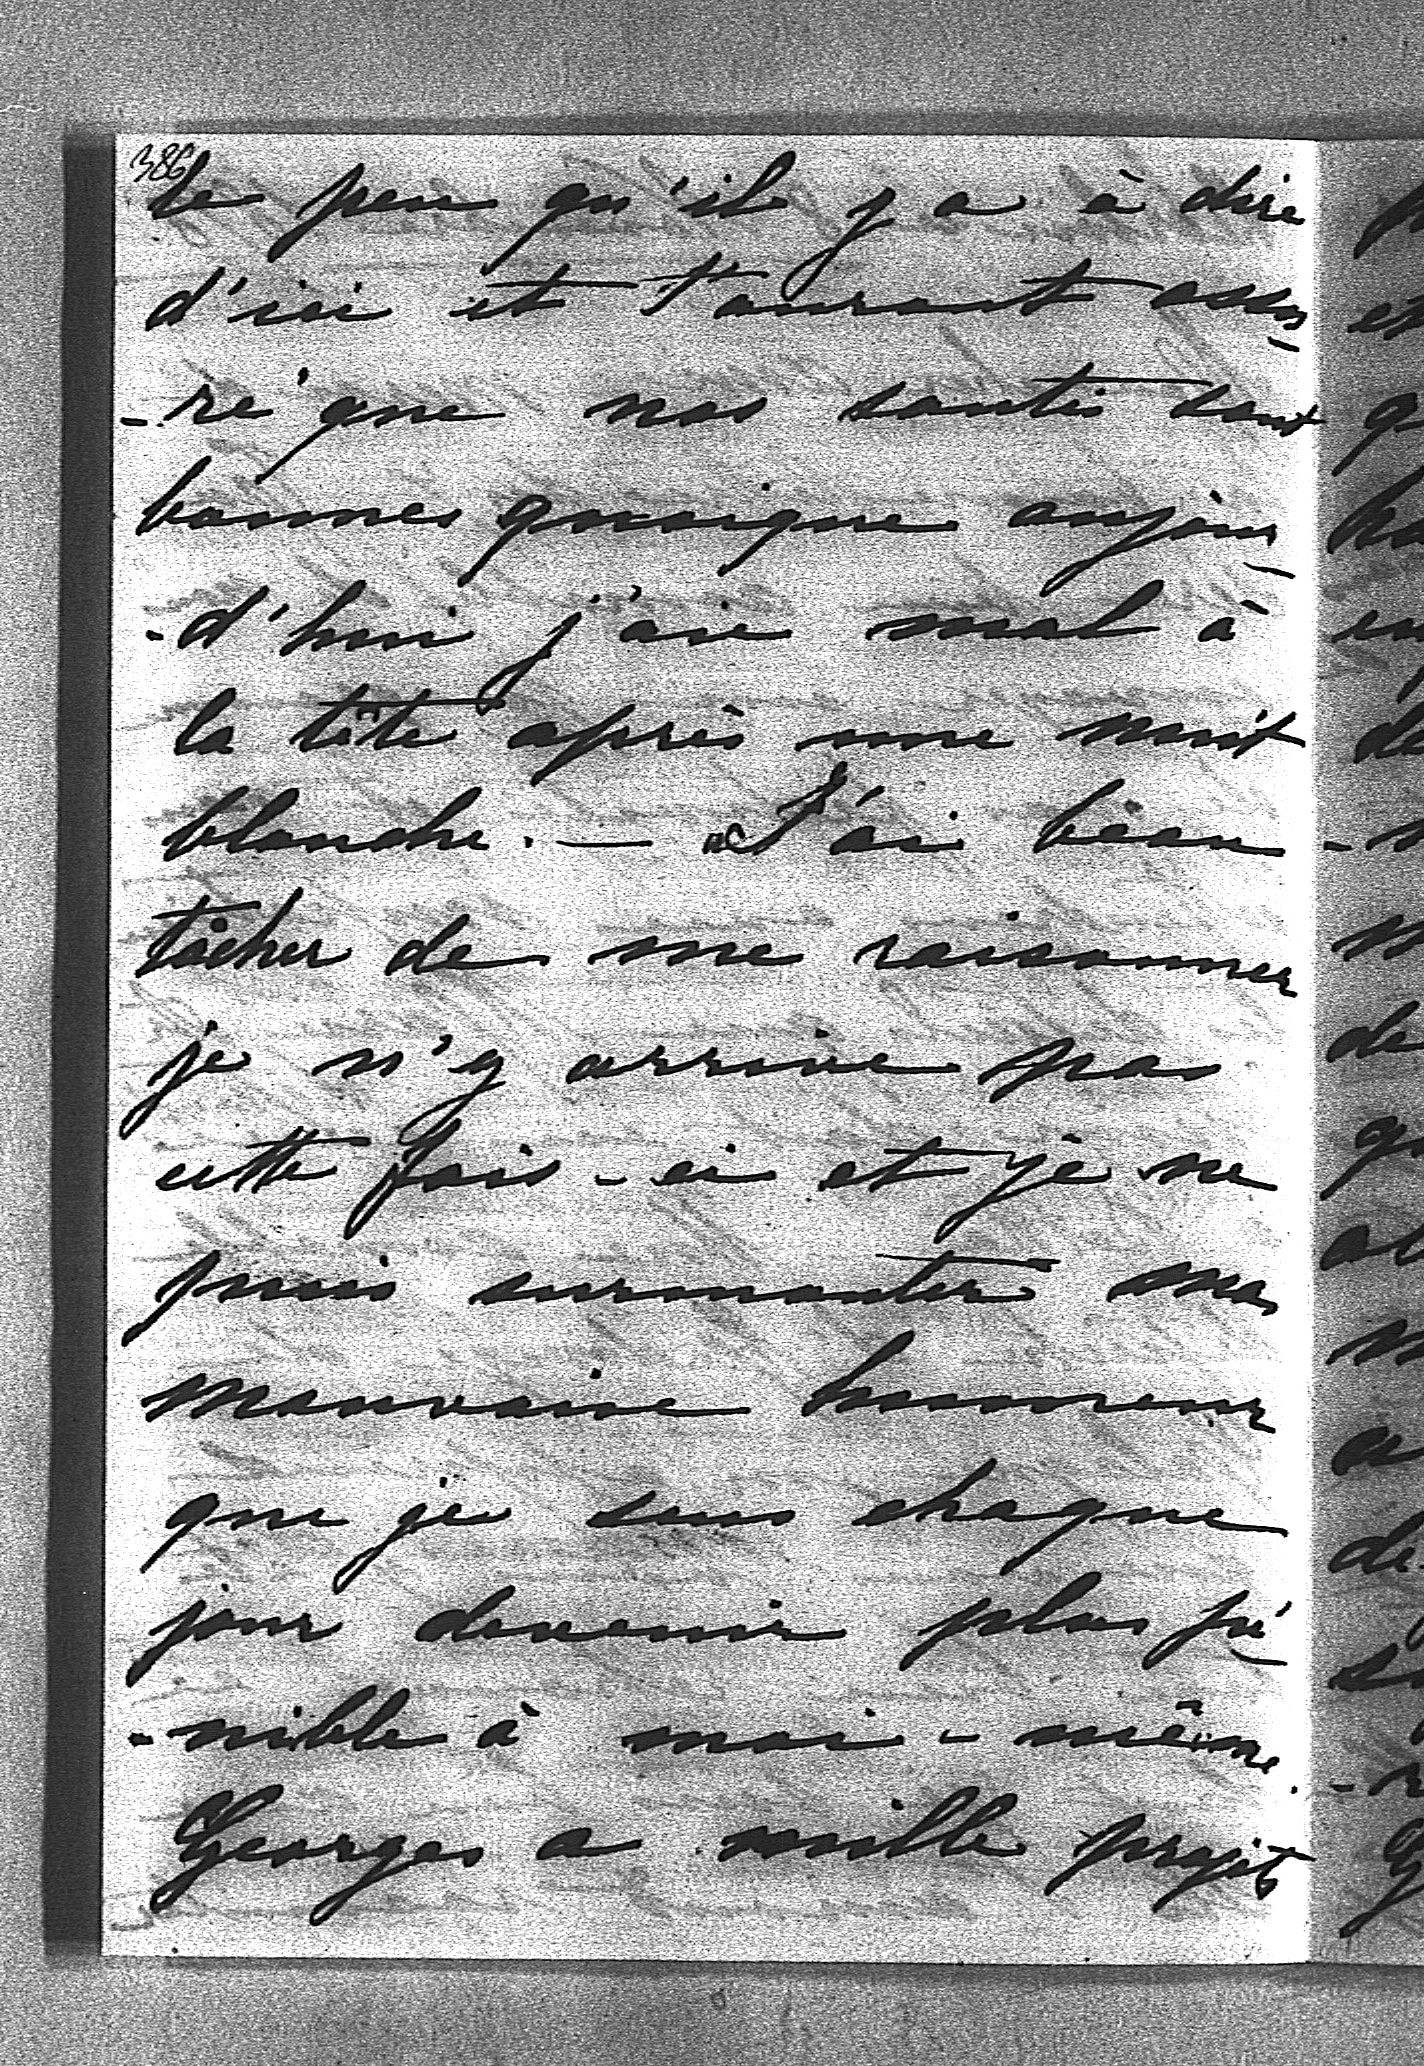 386
le peu qu'il y a à dire
d'ici et t'aurant assu
-ré que nos santés sont
bonnes quoique aujour
-d'hui j'aie mal à
la tête après une nuit
blanche. — J'ai beau
tâcher de me raisonner
je n'y arrive pas
cette fois-ci et je ne
puis surmonter ma
mauvaise humeur
que je sens chaque
jour devenir plus pé
-nible à moi-même.
Georges a mille projets